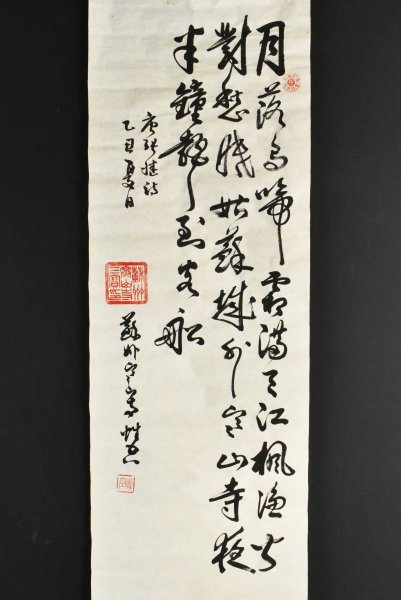 月落烏啼霜滿天江楓漁火
對愁眠姑蘇城外寒山寺夜
半鐘聲到客船
唐張繼詩
乙丑夏日
蘇州寒山寺性空